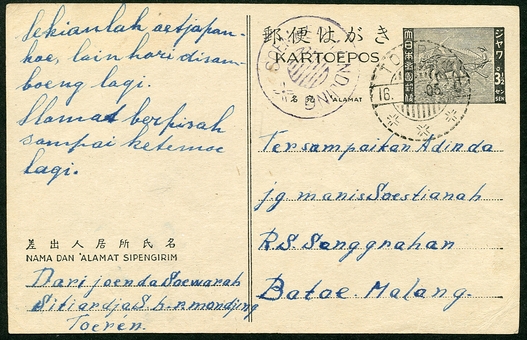 Sekianlah oetjapan-
koe, lain hari disam-
boeng lagi.
Slamat berpisah
sampai ketemoe
lagi.
差出人居所氏名
NAMA DAN ALAMAT SIPENGIRIM
Dari joenda Soewarah
Sitiardja S.
Toerén.
郵便はがき
KARTOEPOS
名 ALAMAT
ジャワ
3½
SEN
大日本帝國郵便
16.
05.
Tersampaikan Adinda
jg manis Soestianah
R.S. Songgrahan
Batoe. Malang.